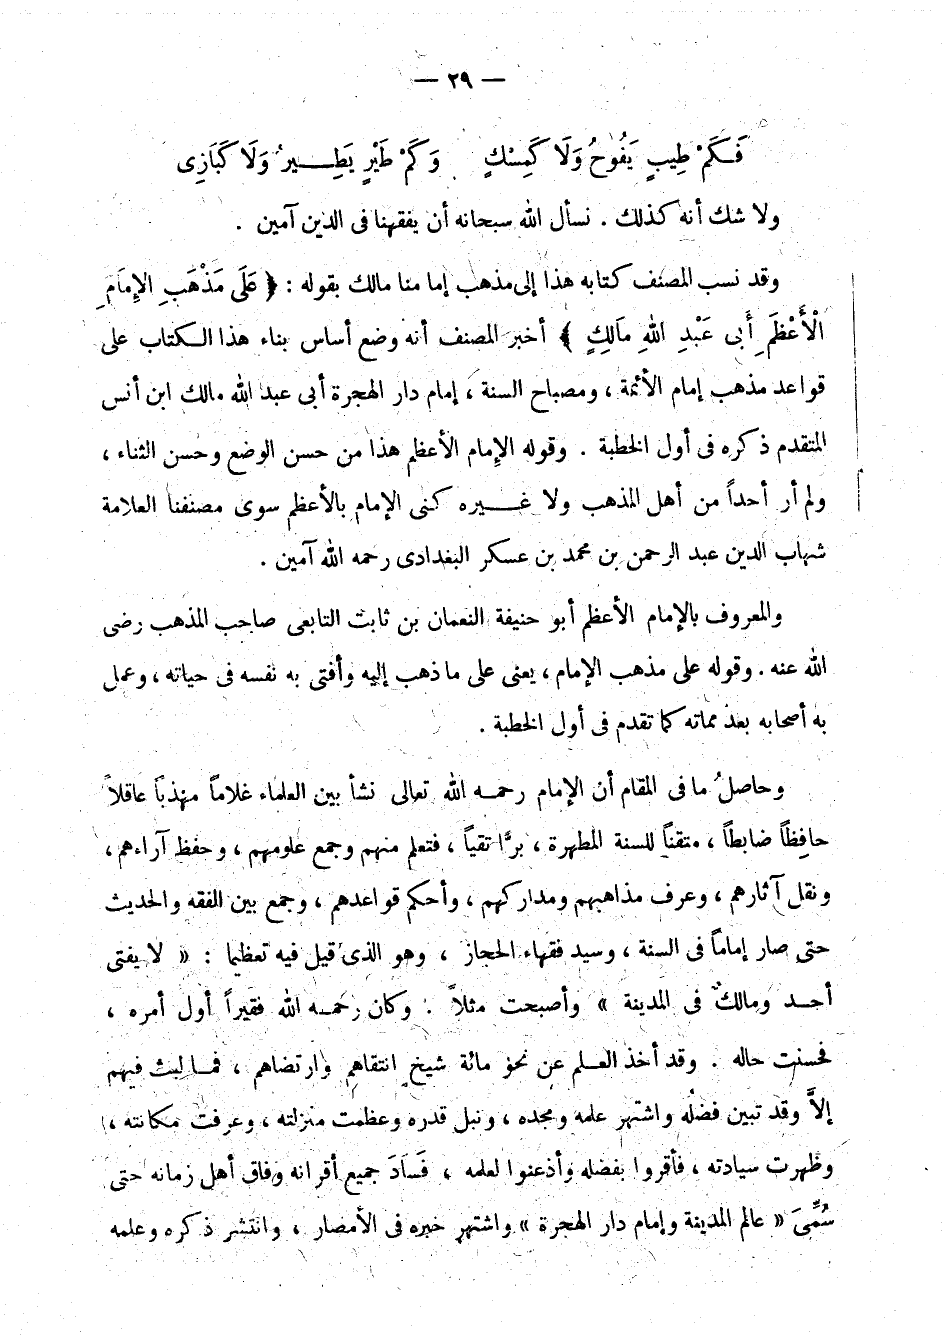 — ٢٩ —
فَكَمْ طِيبٍ يَفُوحُ وَلَا كَمِسْكٍ وَكَمْ طَيْرٍ يَطِيرُ وَلَا كَبَازِى
ولا شك أنه كذلك . نسأل الله سبحانه أن يفقهنا فى الدين آمين .
وقد نسب المصنف كتابه هذا إلى مذهب إما منا مالك بقوله : ﴿ عَلَى مَذْهَبِ الإِمَامِ
الْأَعْظَمِ أَبِى عَبْدِ اللهِ مَالِكٍ ﴾ أخبر المصنف أنه وضع أساس بناء هذا الكتاب على
قواعد مذهب إمام الأئمة ، ومصباح السنة ، إمام دار الهجرة أبى عبد الله مالك ابن أنس
المتقدم ذكره فى أول الخطبة . وقوله الإمام الأعظم هذا من حسن الوضع وحسن الثناء ،
ولم أر أحداً من أهل المذهب ولا غيره كنى الإمام بالأعظم سوى مصنفنا العلامة
شهاب الدين عبد الرحمن بن محمد بن عسكر البغدادى رحمه الله آمين .
والمعروف بالإمام الأعظم أبو حنيفة النعمان بن ثابت التابعى صاحب المذهب رضى
الله عنه . وقوله على مذهب الإمام ، يعنى على ما ذهب إليه وأفتى به نفسه فى حياته ، وعمل
به أصحابه بعد مماته كما تقدم فى أول الخطبة .
وحاصلُ ما فى المقام أن الإمام رحمه الله تعالى نشأ بين العلماء غلاماً مهذباً عاقلاً
حافِظاً ضابطاً ، متقناً للسنة المطهرة ، برًّا تقياً ، فتعلم منهم وجمع علومهم ، وحفظ آراءهم ،
ونقل آثارهم ، وعرف مذاهبهم ومداركهم ، وأحكم قواعدهم ، وجمع بين الفقه والحديث
حتى صار إماماً فى السنة ، وسيد فقهاء الحجاز ، وهو الذى قيل فيه تعظيما : « لا يفتى
أحد ومالكٌ فى المدينة » وأصبحت مثلاً . وكان رحمه الله فقيراً أول أمره ،
فحسنت حاله . وقد أخذ العلم عن نحو مائة شيخ انتقاهم وارتضاهم ، فما لبث فيهم
إلاَّ وقد تبين فضله واشتهر علمه ومجده ، ونبل قدره وعظمت منزلته ، وعرفت مكانته ،
وظهرت سيادته ، فأقروا بفضله وأذعنوا لعلمه ، فَسَادَ جميع أقرانه وفاق أهل زمانه حتى
سُمِّىَ « عالم المدينة وإمام دار الهجرة » واشتهر خبره فى الأمصار ، وانتشر ذكره وعلمه